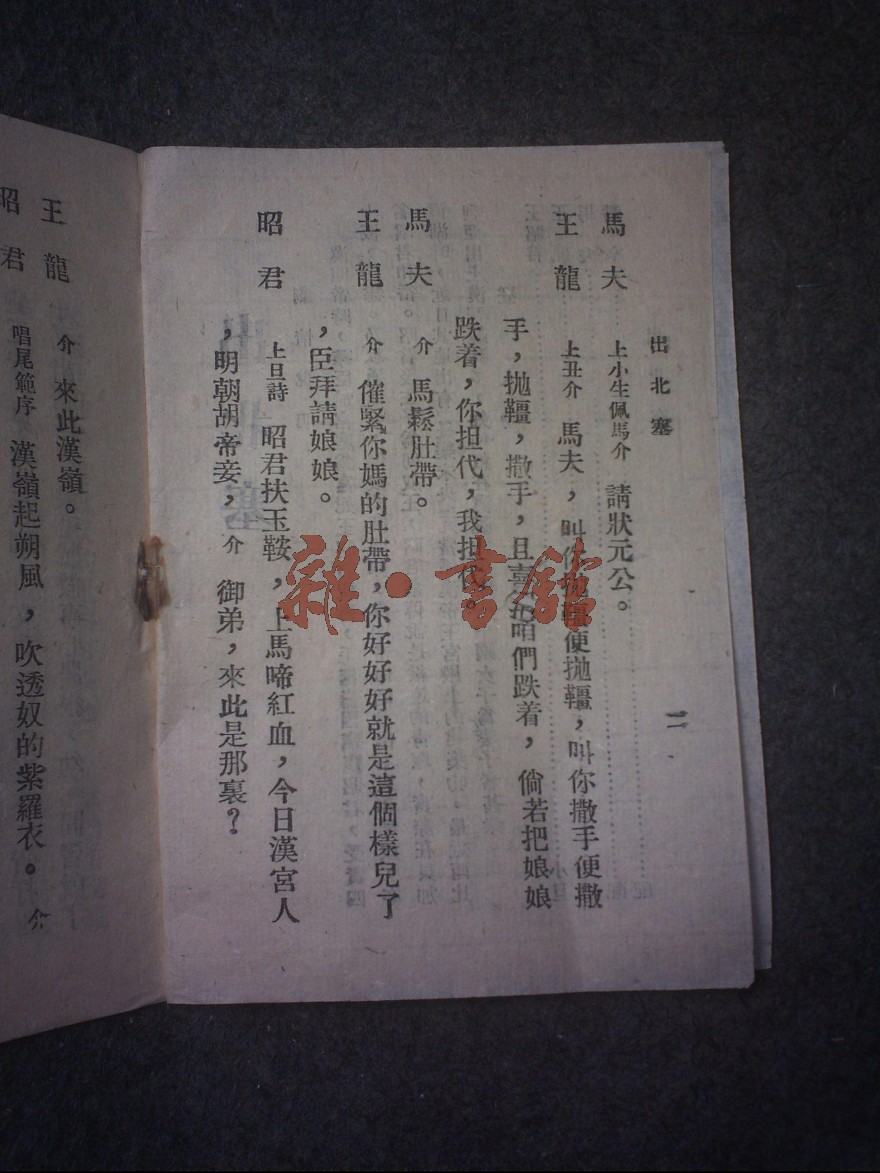 出北塞
二
馬夫 上小生佩馬介 請狀元公。
王龍 上丑介 馬夫，叫你拋韁便拋韁，叫你撒手便撒
手，拋韁，撒手，且喜咱們跌着，倘若把娘娘
跌着，你担代，我担代。
馬夫 介 馬鬆肚帶。
王龍 介 催緊你媽的肚帶，你好好好就是這個樣兒了
，臣拜請娘娘。
昭君 上旦詩 昭君扶玉鞍，上馬啼紅血，今日漢宮人
，明朝胡帝妾，介 御弟，來此是那裏？
王龍 介 來此漢嶺。
昭君 唱尾範序 漢嶺起朔風，吹透奴的紫羅衣。介
雜·書館